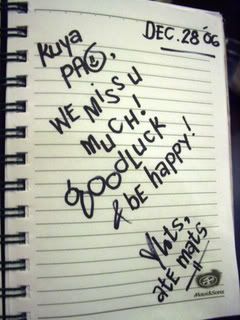 DEC. 28 '06
Kuya
PAO,
WE MISS U
MUCH!
GOODLUCK
& BE HAPPY!
ate mats